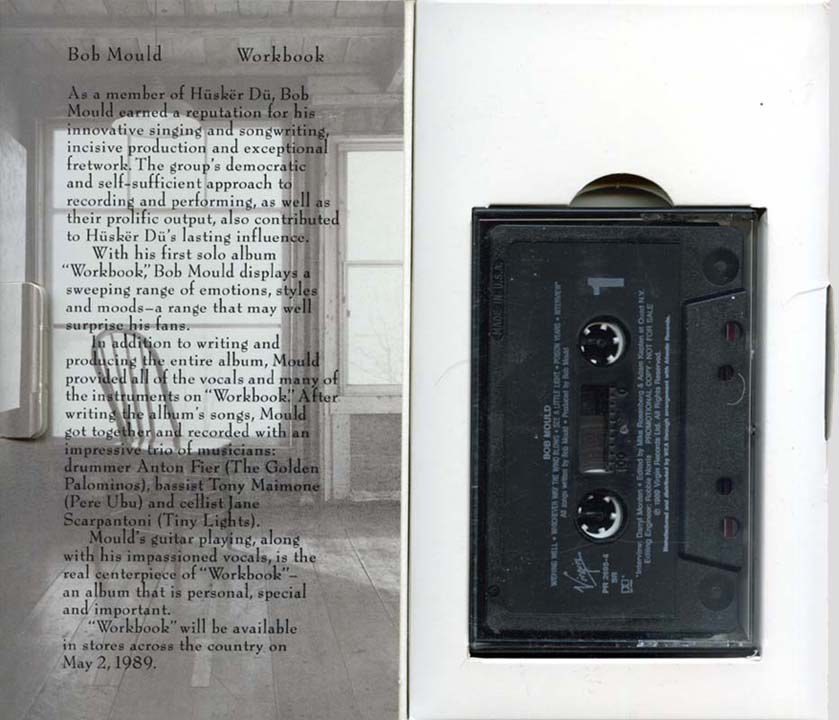 Bob Mould Workbook
As a member of Hüskër Dü, Bob
Mould earned a reputation for his
innovative singing and songwriting,
incisive production and exceptional
fretwork. The group's democratic
and self-sufficient approach to
recording and performing, as well as
their prolific output, also contributed
to Hüskër Dü's lasting influence.
With his first solo album
"Workbook," Bob Mould displays a
sweeping range of emotions, styles
and moods–a range that may well
surprise his fans.
In addition to writing and
producing the entire album, Mould
provided all of the vocals and many of
the instruments on "Workbook." After
writing the album's songs, Mould
got together and recorded with an
impressive trio of musicians:
drummer Anton Fier (The Golden
Palominos), bassist Tony Maimone
(Pere Ubu) and cellist Jane
Scarpantoni (Tiny Lights).
Mould's guitar playing, along
with his impassioned vocals, is the
real centerpiece of "Workbook"–
an album that is personal, special
and important.
"Workbook" will be available
in stores across the country on
May 2, 1989.
MADE IN U.S.A.
1
BOB MOULD
WISHING WELL • WHICHEVER WAY THE WIND BLOWS • SEE A LITTLE LIGHT • POISON YEARS • INTERVIEW*
All songs written by Bob Mould • Produced by Bob Mould
100
Virgin
PR 2695-4
SR
*Interview: Darryl Morden • Edited by Mike Rosenberg & Adam Kaplan at Quad N.Y.
Editing Engineer: Robbie Norris PROMOTIONAL COPY - NOT FOR SALE
© 1989 Virgin Records Ltd. All Rights Reserved.
Manufactured and distributed by WEA through arrangement with Atlantic Records.